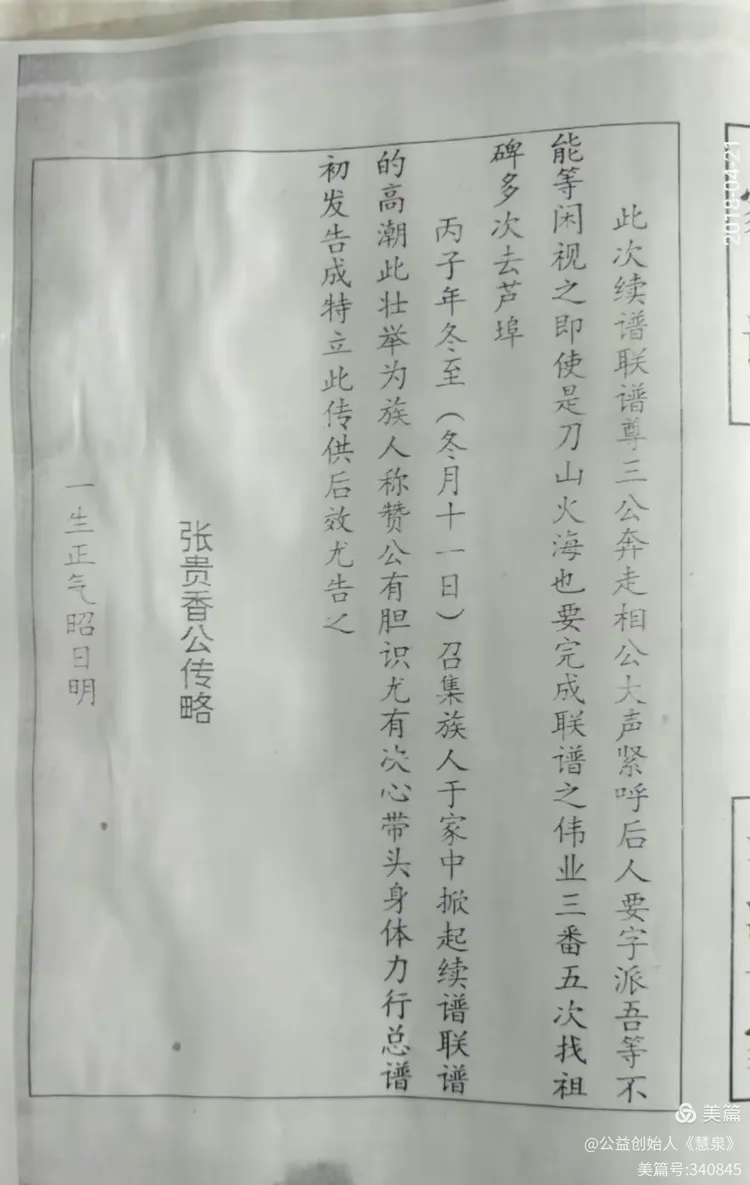 此次续谱联谱尊三公奔走相公大声紧呼后人要字派吾等不
能等闲视之即使是刀山火海也要完成联谱之伟业三番五次找祖
碑多次去芦埠
丙子年冬至（冬月十一日）召集族人于家中掀起续谱联谱
的高潮此壮举为族人称赞公有胆识尤有决心带头身体力行总谱
初发告成特立此传供后效尤告之
张贵香公传略
一生正气昭日明
2018-04-21
美篇
@公益创始人《慧泉》
美篇号:340845